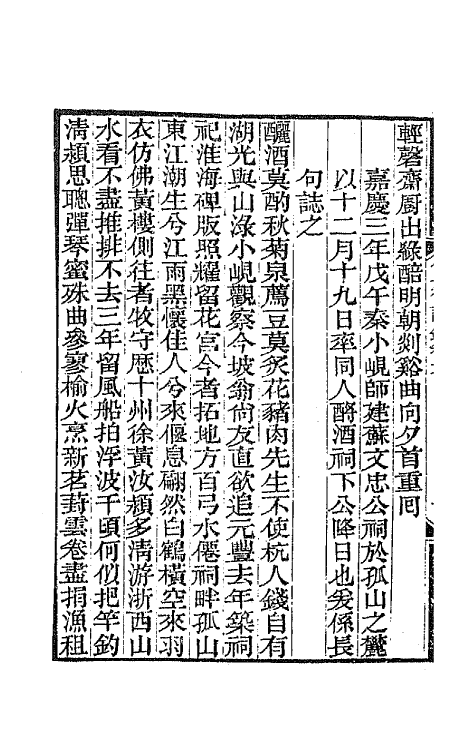 輕磬齋厨出綠醅明朝剡谿曲向夕首重囘
嘉慶三年戊午秦小峴師建蘇文忠公祠於孤山之麓
以十二月十九日率同人酹酒祠下公降日也爰係長
句誌之
釃酒莫酌秋菊泉薦豆莫炙花豬肉先生不使杭人錢自有
湖光與山淥小峴觀察今坡翁尙友直欲追元豐去年築祠
祀淮海碑版照耀留花宮今者拓地方百弓水僊祠畔孤山
東江潮生兮江雨黑懷佳人兮來偃息翩然白鶴橫空來羽
衣仿佛黃樓側往者牧守歴十州徐黃汝潁多淸游浙西山
水看不盡推排不去三年留風船拍浮波千頃何似把竿釣
淸潁思聰彈琴蜜殊曲參寥榆火烹新茗葑雲卷盡捐漁租